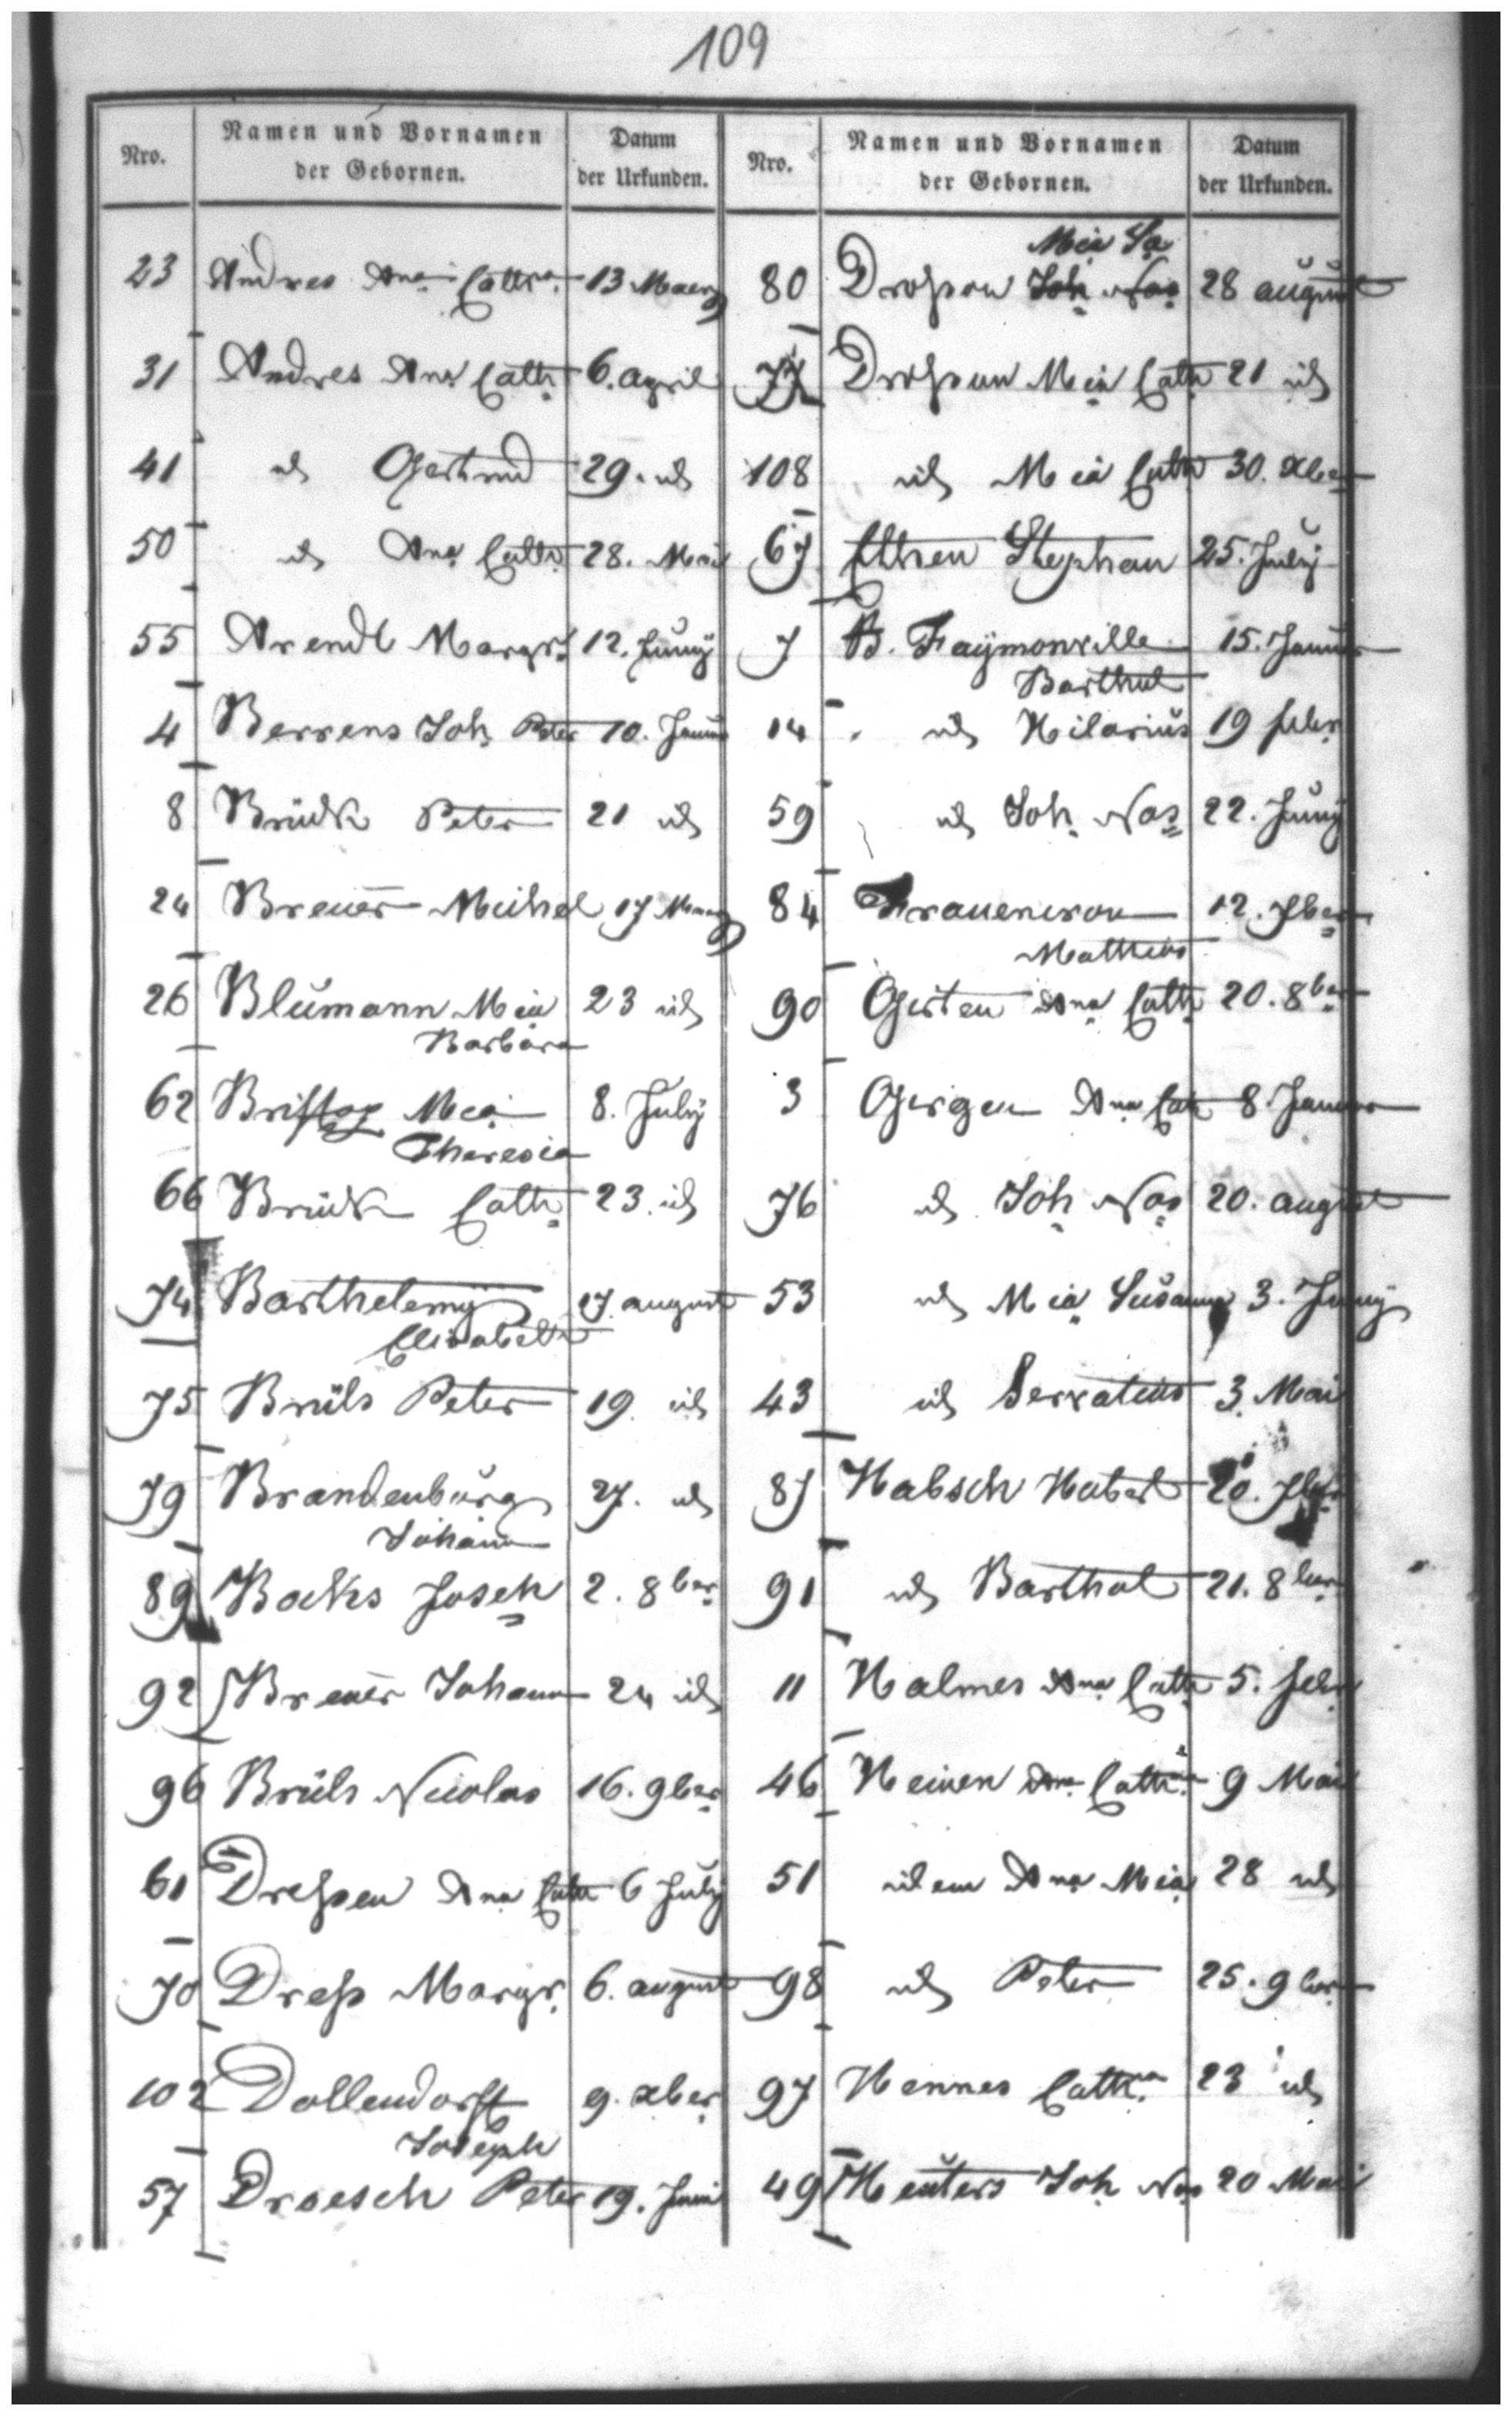 109
Nro. Namen und Vornamen der Gebornen. Datum der Urkunden.
23 Andres Ana Cath.a 13 Maerz
31 Andres Ana Cath 6. april
41 id Gertrud 29. id
50 id Ana Cath 28. Mai
55 Arendt Margr. 12. Juny
4 Berrens Joh Peter 10. Januar
8 Brück Peter 21 id
24 Breuer Michel 17 Maerz
26 Blumann Mia 23 id
Barbara
62 Mia 8. July
Theresia
66 Brück Cath 23. id
74 Barthelemy 17. august
Elisabeth
75 Brüls Peter 19. id
79 Brandenburg 27. id
Johann
89 Backs Joseh 2. 8ber
92 Breuer Johann 24 id
96 Brüls Nicolas 16. 9ber
61 Dreßen Ana Cath 6 July
70 Dreß Margr. 6. august
102 Dollendorff 9. xber
Joseph
57 Droesch Peter 19. Juni
Nro. Namen und Vornamen der Gebornen. Datum der Urkunden.
Mia Sa
80 Droßon Joh Nas 28 august
77 Droßon Mia Cath 21 id
108 id Mia Cath 30. xber
67 Ethen Stephan 25. July
7 B. Faymonville 15. Januar
Barthel
14 id Hilarius 19 febr
59 id Joh Nas 22. Juny
84 Frauencron 12. 7ber
Mathias
90 Girten Ana Cath 20. 8ber
3 Girgen Ana Cath 8 Januar
76 id Joh Nas 20. august
53 id Mia Susanna 3. Juny
43 id Servatius 3. Mai
87 Habsch Hubert 20. 7ber
91 id Barthol 21. 8ber
11 Halmes Ana Cath 5. febr
46 Heinen Ana Cath.a 9 Mai
51 idem Ana Mia 28 id
98 id Peter 25. 9ber
97 Hennes Cath.a 23 id
49 Heuters Joh Nas 20 Mai